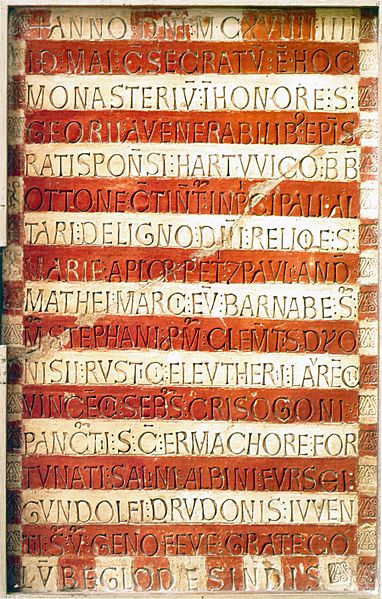 +ANNO·DNI·M·C·XVIIII·IIII
I·D·MAI·C̄SECRATV̄·Ē·HOC
MONASTERIV̄·ĪHONORE·S·
GEORII·A VENERABILIB9·EPIS̄
RATISPON̄SI·HARTVVICO·B̄B̄
OTTONE C̄TINT̄·INP̄CIPALI·AL
TARI·DE LIGNO·DN̄I·RELIQE·S·
MARIE·APLOR·PET7PAVLI·AND·
MATHEI·MARCI·EV̄·BARNABE·S̄
M̄·STEPHANI·P̄M̄·CLEM̄TIS·DYO
NISII·RVSTICI·ELEVTHERII·LARĒCII
VINCĒCII·SEB̄S·CRISOGONI·
PANC̄TI·S̄·C̄·ERMACHORE·FOR
TVNATI·SALINI·ALBINI·FVRSEI·
GVNDOLFI·DRVDONIS·IVVEN
TII·S̄·V̄·GENOFEVE·GRATE·CO
LV̄BE·GLODESINDIS·